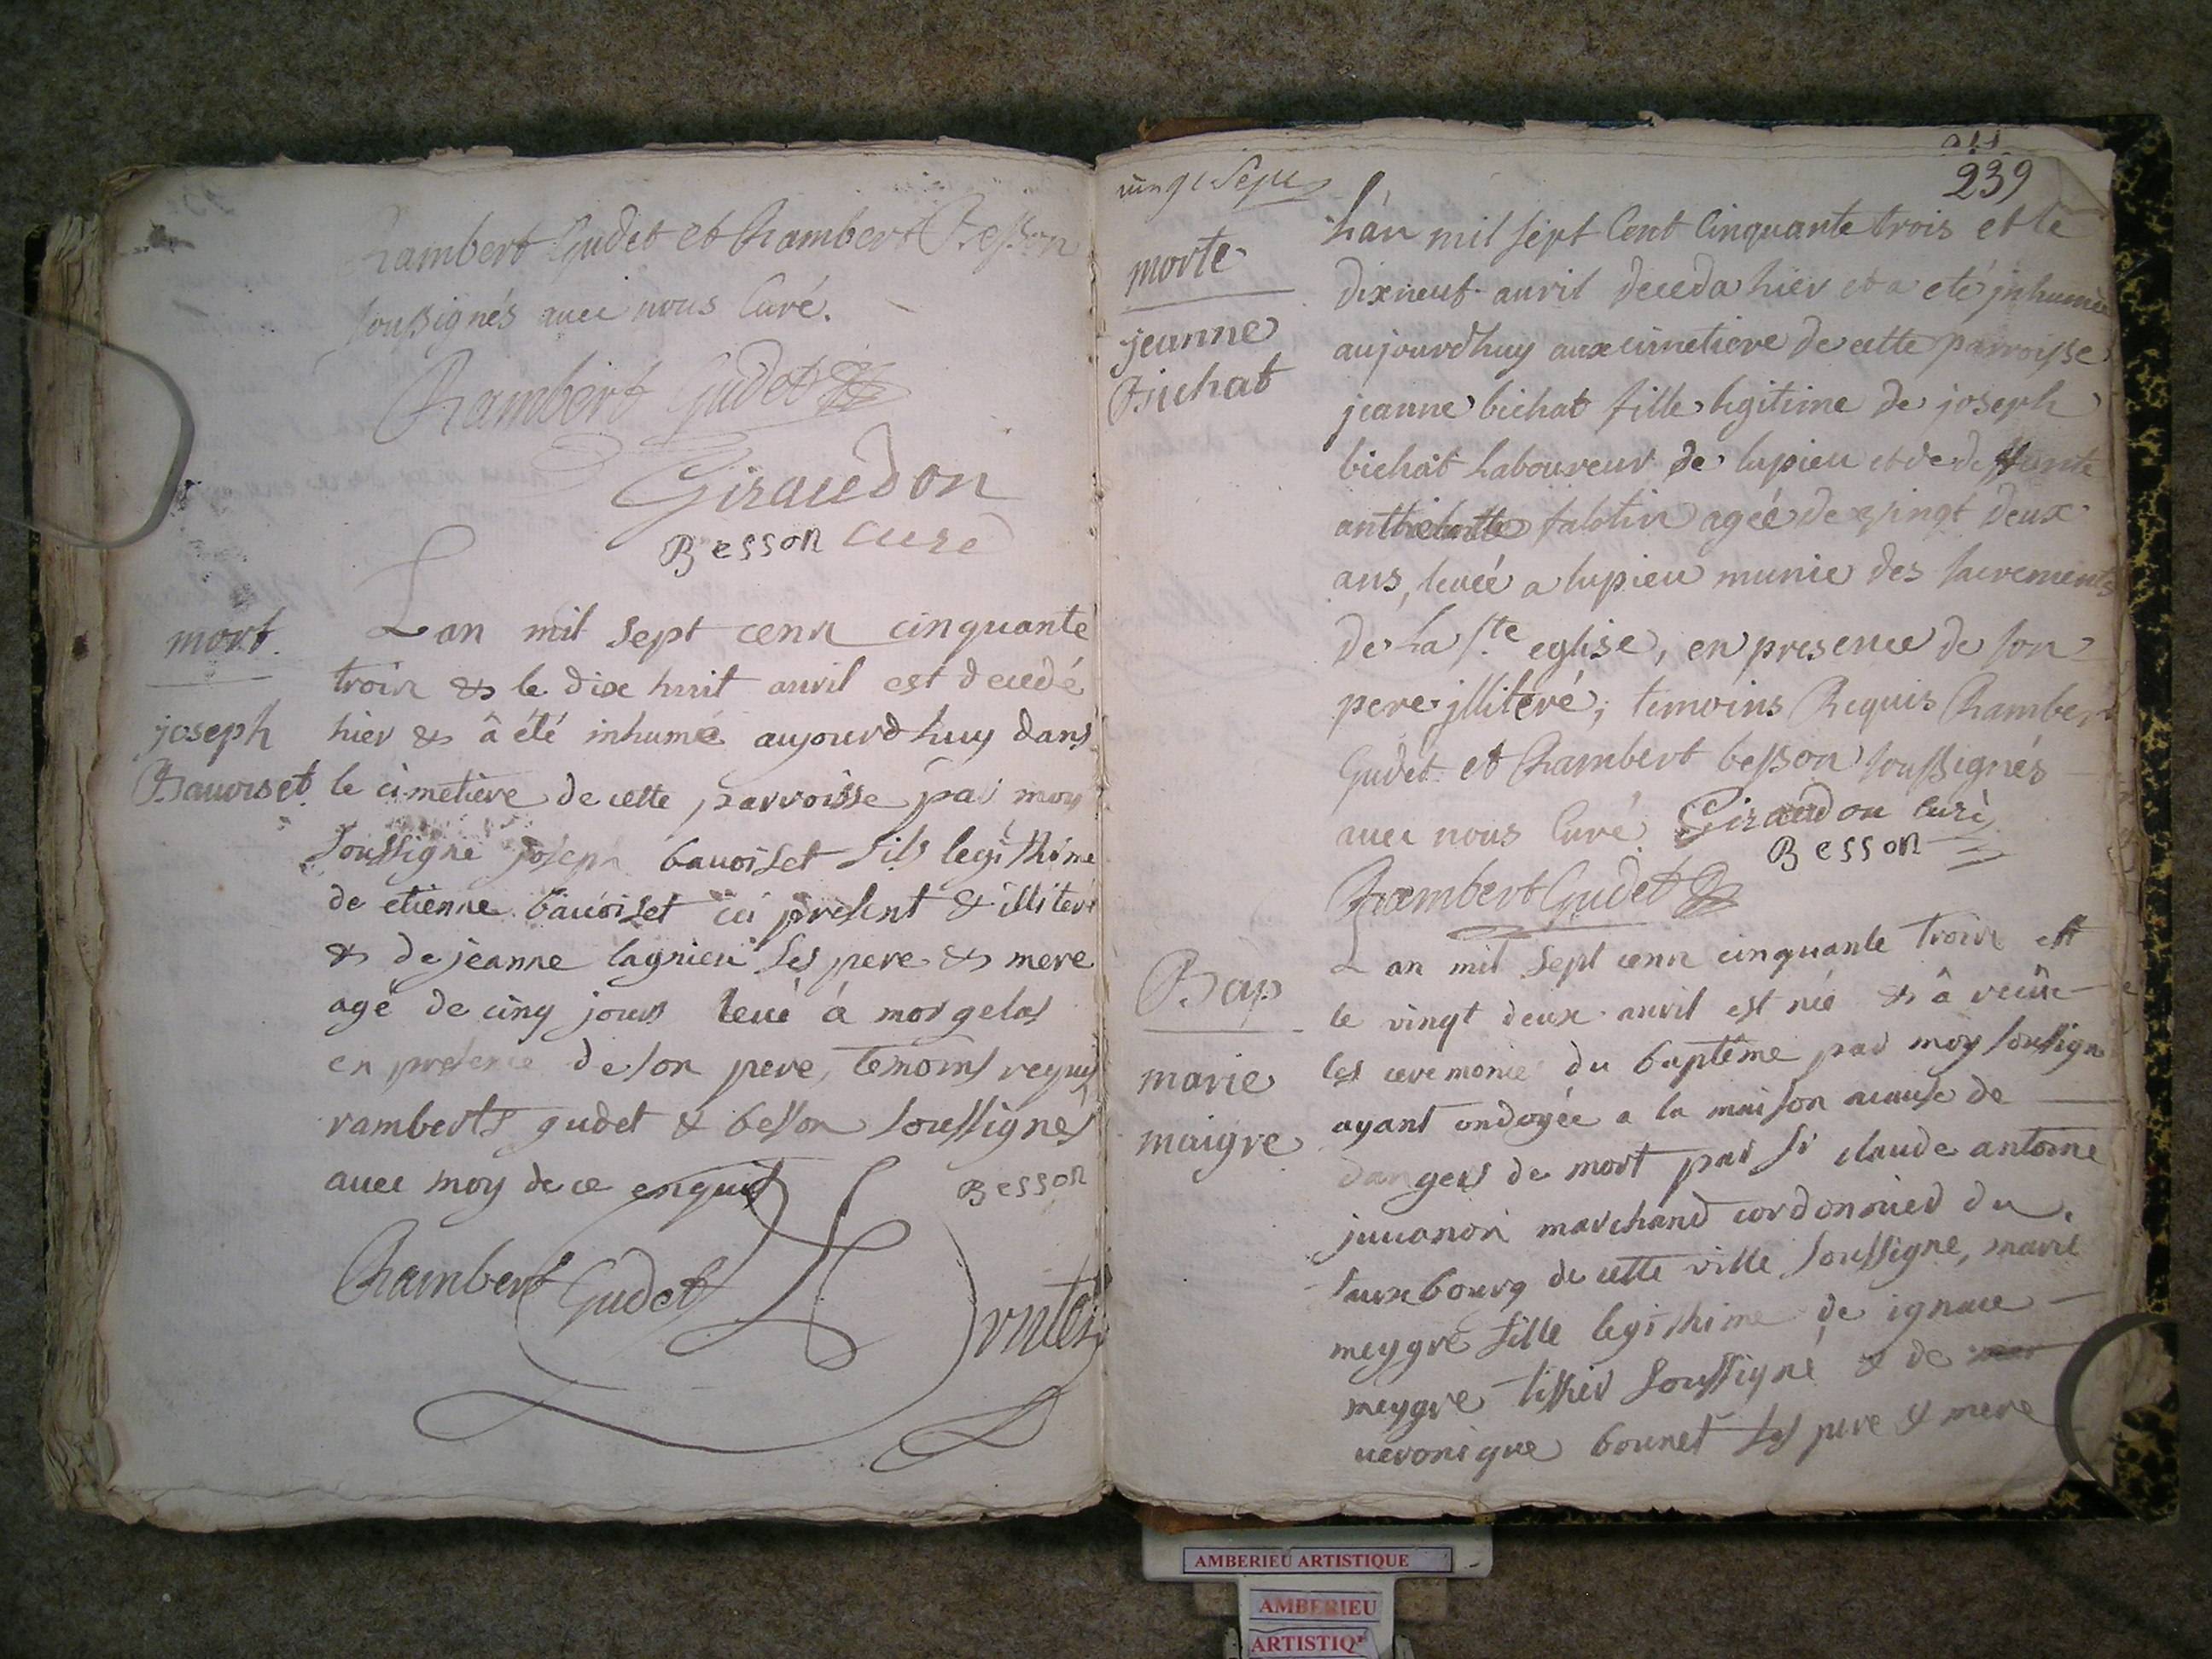 Rambert Gudet et Rambert Besson
soussignés avec nous Curé.
Rambert Gudet
Giraudon
Besson curé
mort.
joseph
Bavoiset.
Lan mil sept cenn cinquante
troin & le dix huit avril est decedé
hier & â été inhumé aujourdhuy dans
le cimetière de cette parroisse par moy
soussigné joseph bavoiset fils legithime
de etienne bavoiset ici présent & illiteré
& de jeanne lagnieu ses pere & mere
agé de cinq jours levé á morgelas
en presence de son pere, temoins requis
ramberts gudet & besson soussignés
avec moy de ce enquis
Besson
Rambert Gudet
vingt sept
239
morte
jeanne
Bichat
Lán mil sépt Cent Cinquante trois et le
dixneuf avril deceda hier et a eté jnhumée
aujourdhuy aux cimetiere de cette parroisse
jeanne bichat fille legitime de joseph
bichat Laboureur de lupieu et de deffunte
talotin ageé de vingt deux
ans, leveé a lupieu munie des sacrements
de La ste eglise, en presence de son
pere jlliteré, temoins Requis Rambert
Gudet et Rambert besson soussignés
avec nous Curé Giraudon curé
Besson
Rambert Gudet
Bap
marie
maigre
Lan mil sept cenn cinquante troin et
le vingt deux avril est née & â reçu
les ceremonie du baptême par moy soussigné
ayant ondoyée a la maison acause de
dangers de mort par sr claude antoine
juvanon marchand cordonnier du
fauxbourg de cette ville soussigné, marie
meygre fille legithime de ignace
meygre tissier soussigné & de
veronique bonnet ses pere & mere
AMBERIEU ARTISTIQUE
AMBERIEU
ARTISTIQ